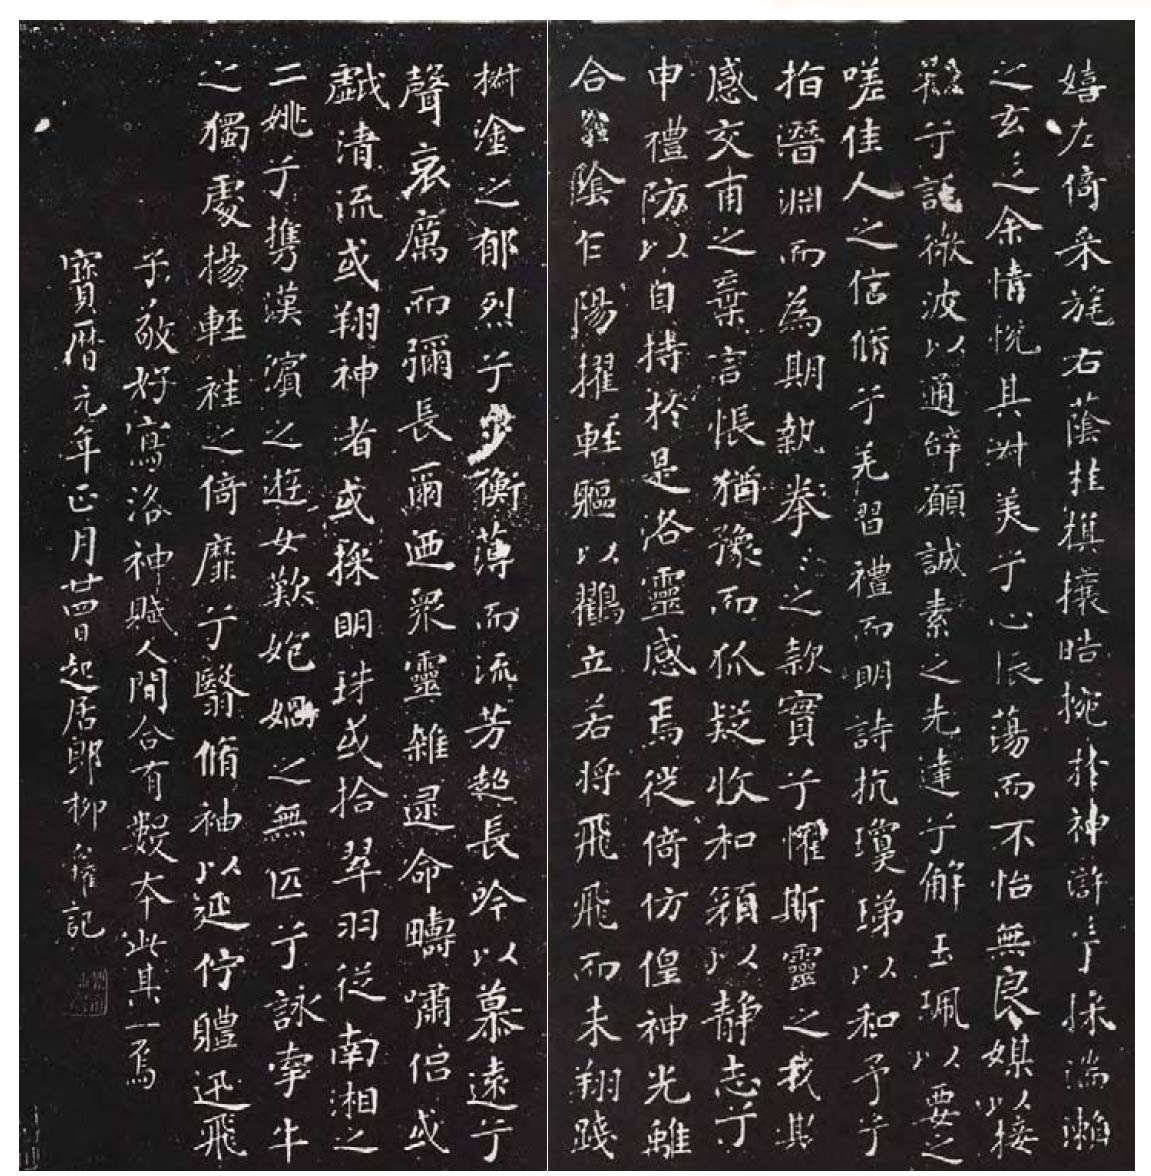 嬉左倚采旄右蔭桂旗攘皓捥於神滸兮採湍瀨
之玄芝余情悅其淑美兮心振蕩而不怡無良媒以接
歡兮託微波以通辭願誠素之先達兮解玉珮以要之
嗟佳人之信脩兮羌習禮而明詩抗瓊珶以和予兮
指潛淵而為期執拳〻之款實兮懼斯靈之我欺
感交甫之棄言悵猶豫而狐疑收和顏以靜志兮
申禮防以自持於是洛靈感焉徙倚仿偟神光離
合乍陰乍陽擢輕軀以鶴立若將飛飛而未翔踐
椒塗之郁烈兮步衡薄而流芳超長吟以慕遠兮
聲哀厲而彌長爾迺眾靈雜遝命疇嘯侶或
戲清流或翔神渚或採明珠或拾翠羽從南湘之
二姚兮攜漢濱之遊女歎匏媧之無匹兮詠牽牛
之獨處揚輕袿之倚靡兮翳脩袖以延佇體迅飛
子敬好寫洛神賦人間合有數本此其一焉
寶曆元年正月廿四日起居郎柳 權記